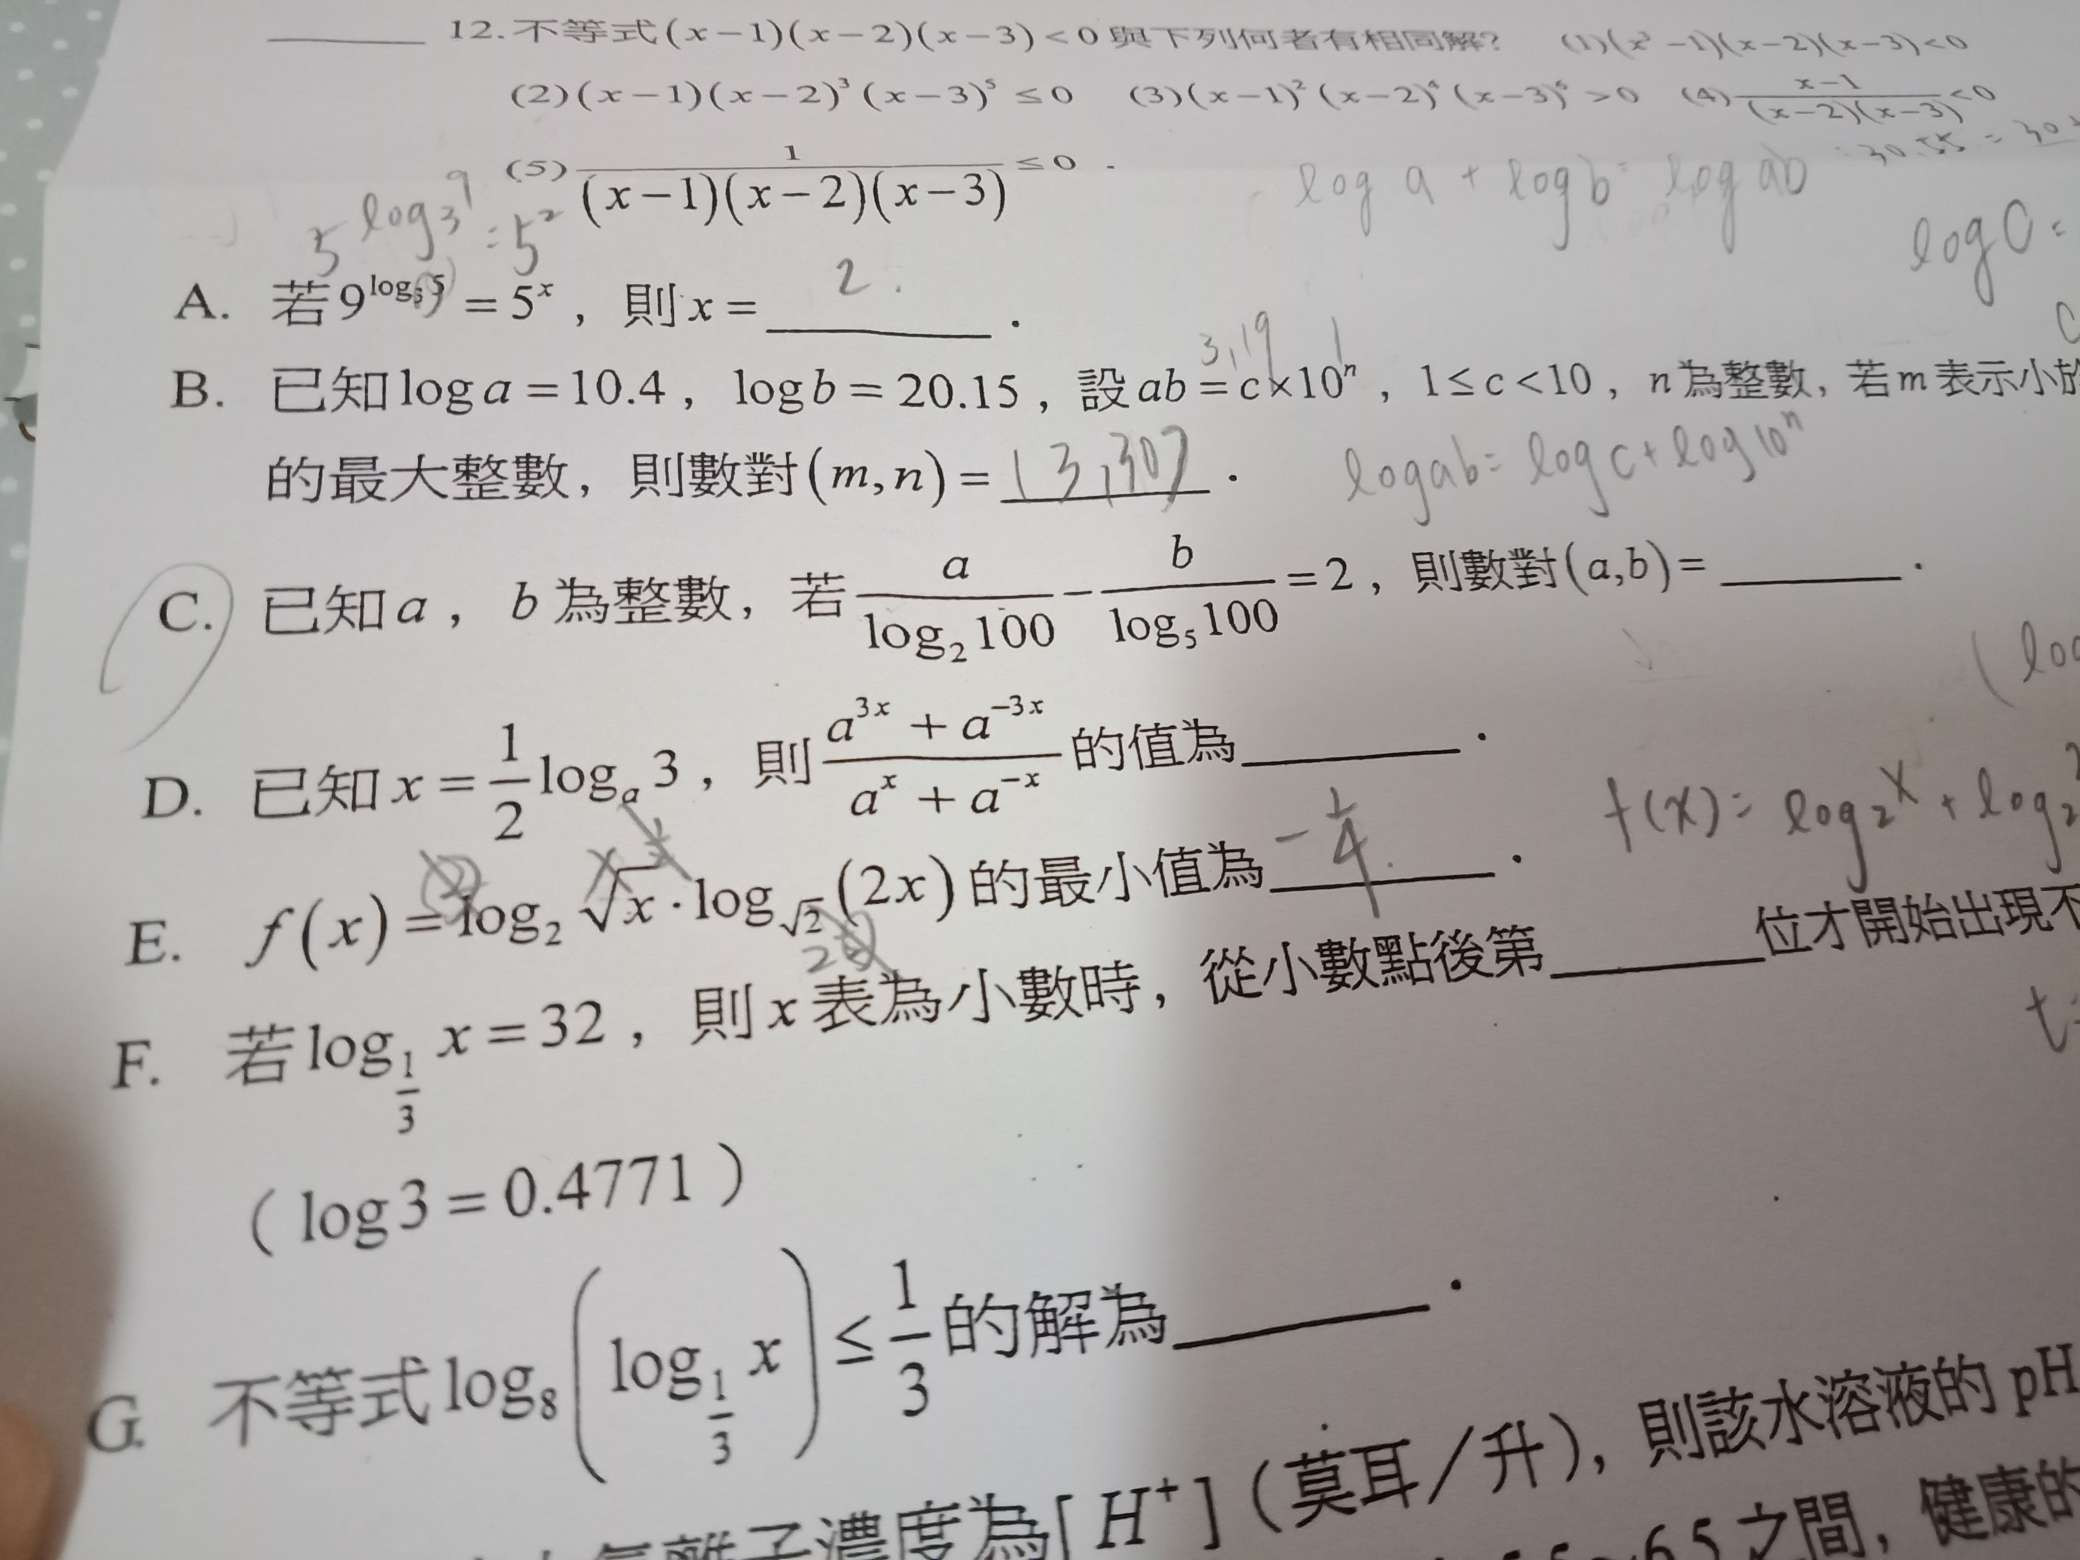 12. 不等式(x-1)(x-2)(x-3)<0與下列何者有相同解? (1)(x³-1)(x-2)(x-3)<0
(2)(x-1)(x-2)³(x-3)⁵≤0 (3)(x-1)²(x-2)⁴(x-3)⁶>0 (4)\frac{x-1}{(x-2)(x-3)}<0
(5)\frac{1}{(x-1)(x-2)(x-3)}≤0 .
log a + log b = log ab
30.55 = 30
5^{log₃9} = 5²
log C =
A. 若9^{log₃5}=5ˣ，則x= 2 .
3, 19 1
B. 已知log a=10.4，log b=20.15，設ab=c×10ⁿ，1≤c<10，n為整數，若m表示小於
的最大整數，則數對(m,n)= (3,30) .
log ab = log c + log 10ⁿ
C. 已知a，b為整數，若\frac{a}{log₂100}-\frac{b}{log₅100}=2，則數對(a,b)= .
D. 已知x=\frac{1}{2}logₐ3，則\frac{a^{3x}+a^{-3x}}{aˣ+a^{-x}}的值為 .
f(x)= log₂x + log₂
E. f(x)=log₂√x·log_{√2}(2x)的最小值為 -\frac{1}{4} .
F. 若log_{\frac{1}{3}}x=32，則x表為小數時，從小數點後第 位才開始出現不
t=
(log3=0.4771)
G. 不等式log₈(log_{\frac{1}{3}}x)≤\frac{1}{3}的解為 .
離子濃度為[H⁺](莫耳/升)，則該水溶液的pH
6.5之間，健康的